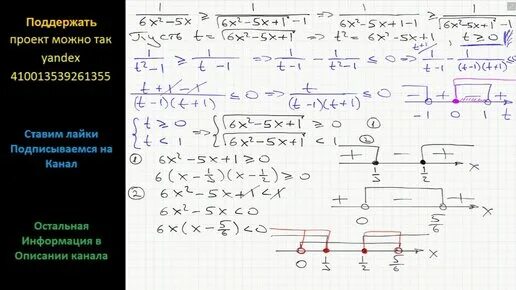 Поддержать
проект можно так
yandex
410013539261355
Ставим лайки
Подписываемся на
Канал
Остальная
Информация в
Описании канала
1/(6x²-5x) ≥ 1/(√(6x²-5x+1) -1) => 1/(6x²-5x+1-1) ≥ 1/(√(6x²-5x+1) -1)
Пусть t = √(6x²-5x+1) => t² = 6x²-5x+1, t ≥ 0
1/(t²-1) ≥ 1/(t-1) => 1/(t²-1) - 1/(t-1) ≤ 0 => 1/(t-1) - 1/((t-1)(t+1)) ≤ 0
(t+1-1)/((t-1)(t+1)) ≤ 0 => t/((t-1)(t+1)) ≤ 0
-1 0 1 t
{ t ≥ 0 => { √(6x²-5x+1) ≥ 0 ①
{ t < 1 { √(6x²-5x+1) < 1 ②
① 6x²-5x+1 ≥ 0
+ - +
1/3 1/2 x
6(x-1/3)(x-1/2) ≥ 0
② 6x²-5x+1 < 1
+ - +
0 5/6 x
6x²-5x < 0
6x(x-5/6) < 0
0 1/3 1/2 5/6 x